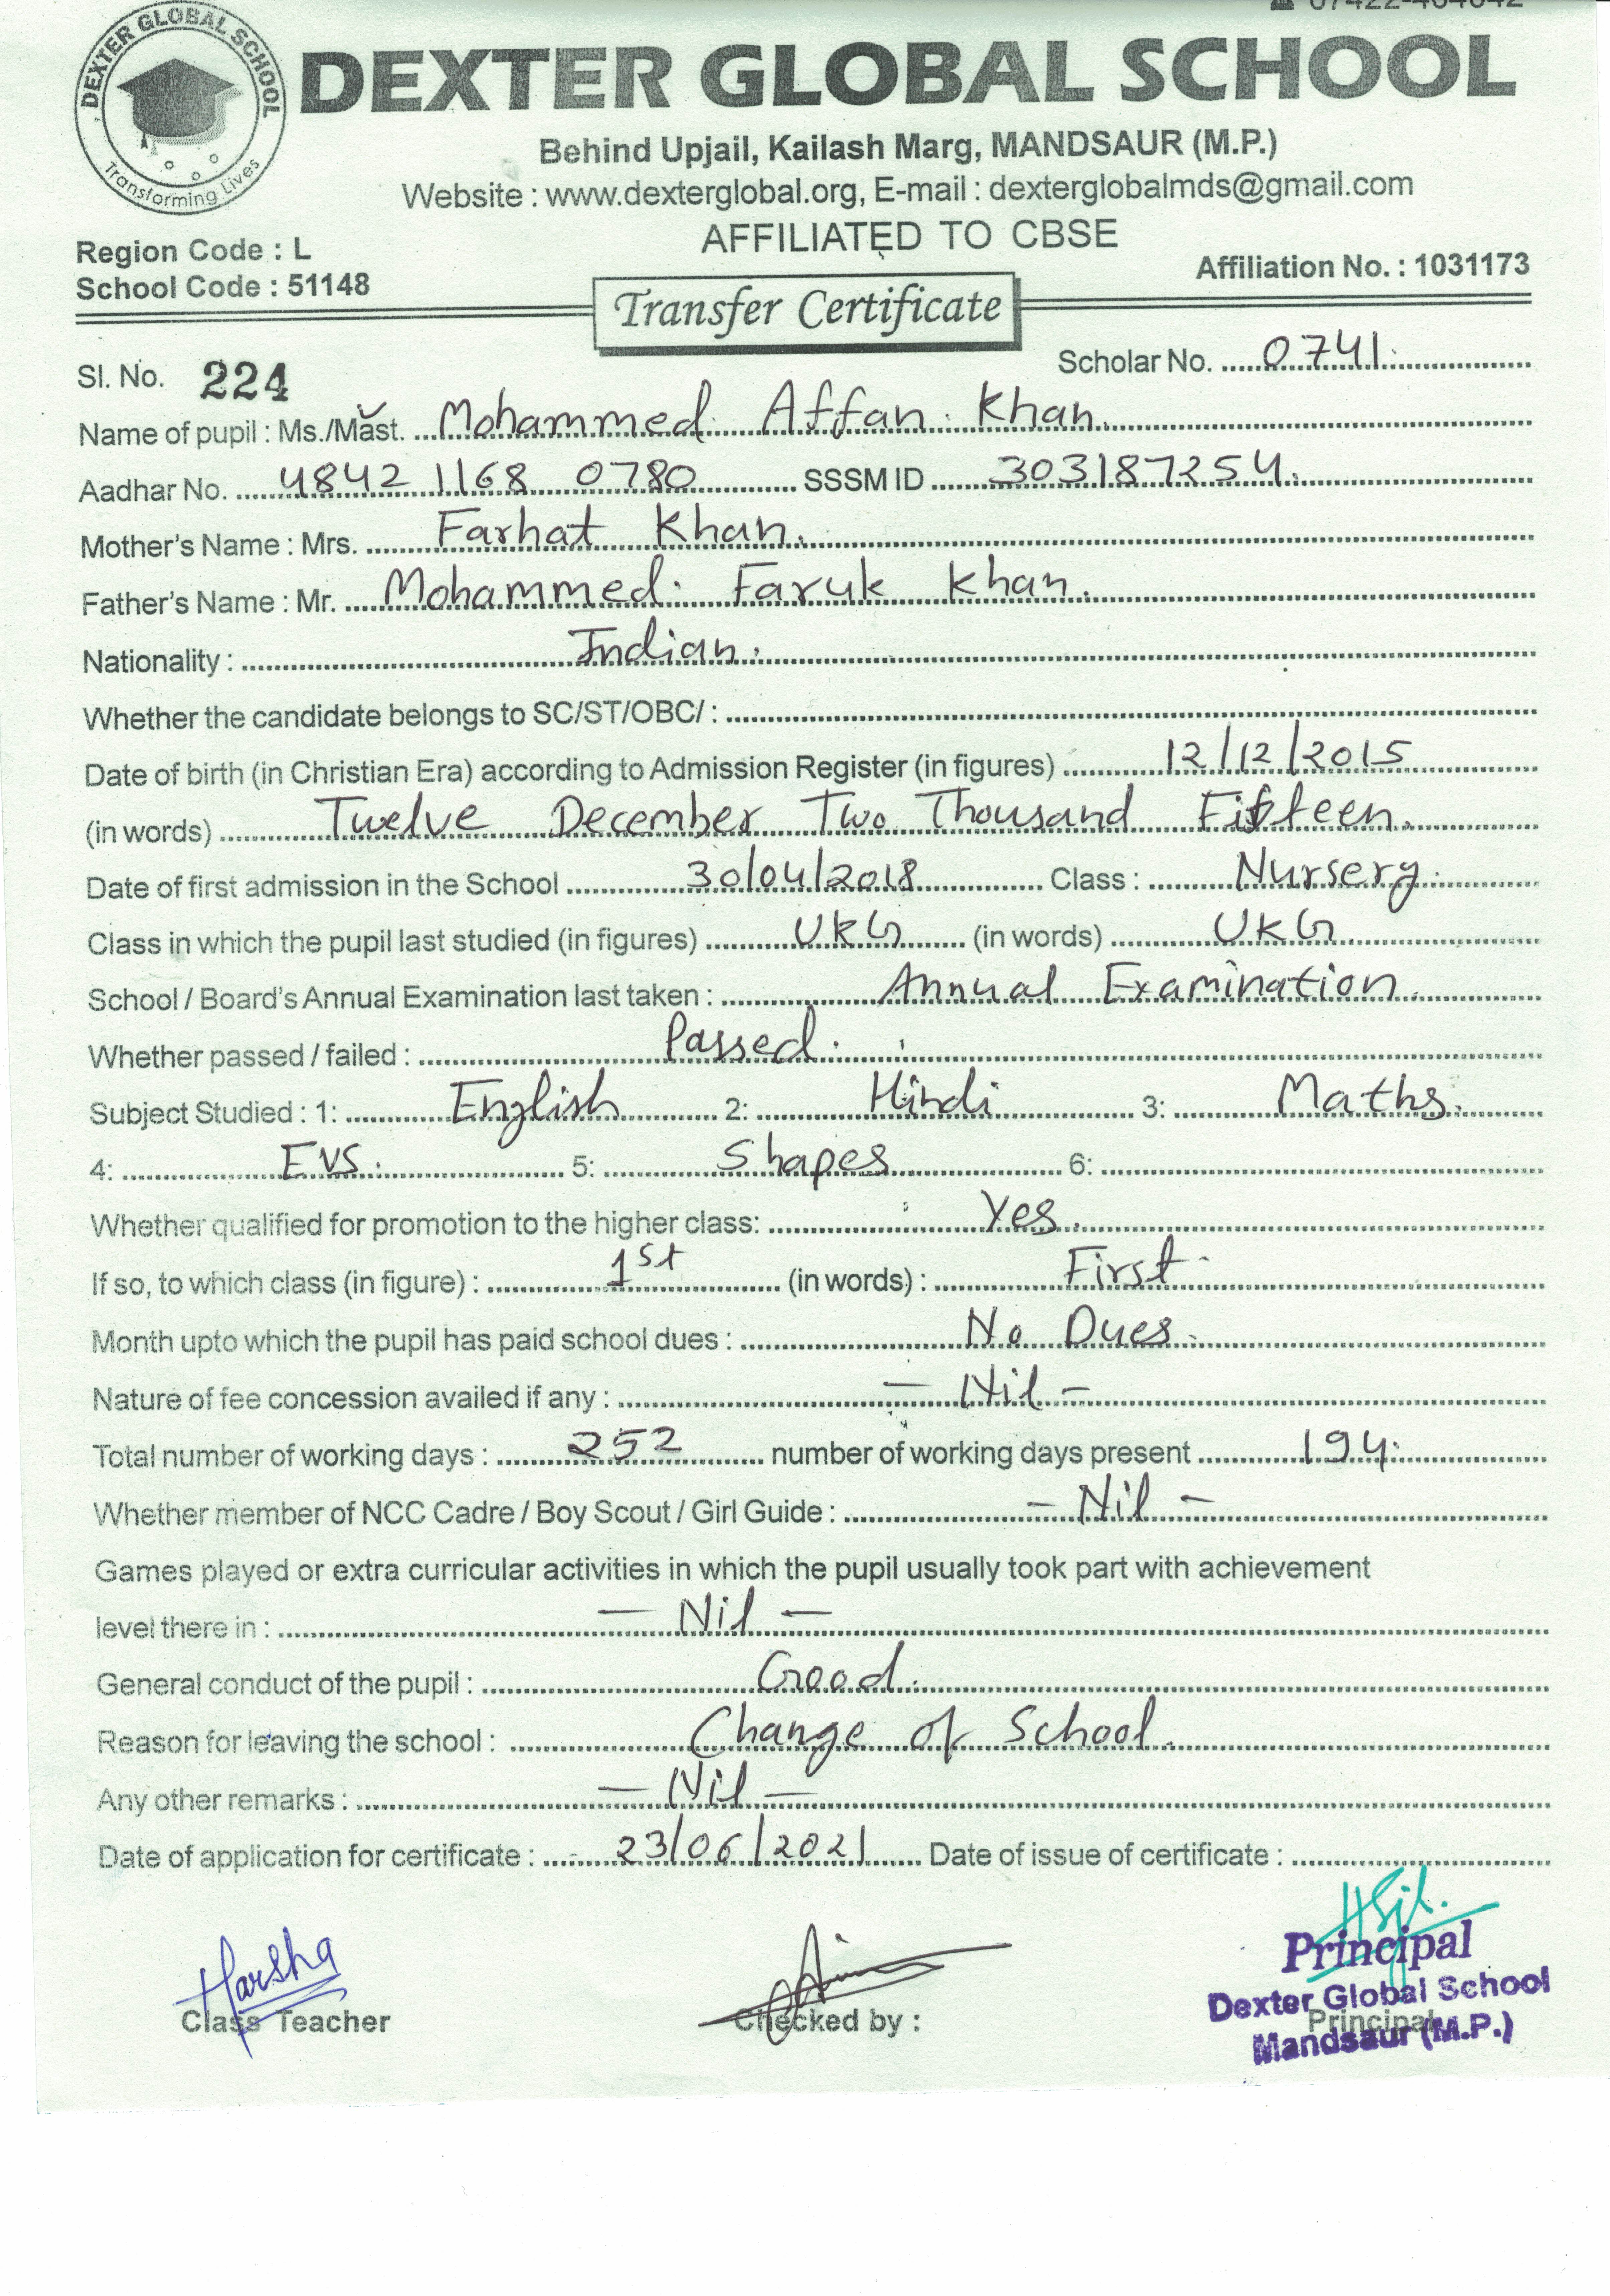 DEXTER GLOBAL SCHOOL
Transforming Lives
DEXTER GLOBAL SCHOOL
Behind Upjail, Kailash Marg, MANDSAUR (M.P.)
Website : www.dexterglobal.org, E-mail : dexterglobalmds@gmail.com
AFFILIATED TO CBSE
Region Code : L
School Code : 51148
Affiliation No. : 1031173
Transfer Certificate
Sl. No. 224 Scholar No. 0741
Name of pupil : Ms./Mast. Mohammed Affan Khan
Aadhar No. 4842 1168 0780 SSSM ID 303187254
Mother's Name : Mrs. Farhat Khan
Father's Name : Mr. Mohammed Faruk Khan
Nationality : Indian
Whether the candidate belongs to SC/ST/OBC/ :
Date of birth (in Christian Era) according to Admission Register (in figures) 12/12/2015
(in words) Twelve December Two Thousand Fifteen
Date of first admission in the School 30/04/2018 Class : Nursery
Class in which the pupil last studied (in figures) UKG (in words) UKG
School / Board's Annual Examination last taken : Annual Examination
Whether passed / failed : Passed
Subject Studied : 1: English 2: Hindi 3: Maths
4: EVS 5: Shapes 6:
Whether qualified for promotion to the higher class: Yes
If so, to which class (in figure) : 1st (in words) : First
Month upto which the pupil has paid school dues : No Dues
Nature of fee concession availed if any : - Nil -
Total number of working days : 252 number of working days present 194
Whether member of NCC Cadre / Boy Scout / Girl Guide : - Nil -
Games played or extra curricular activities in which the pupil usually took part with achievement
level there in : - Nil -
General conduct of the pupil : Good
Reason for leaving the school : Change of School
Any other remarks : - Nil -
Date of application for certificate : 23/06/2021 Date of issue of certificate :
Harsha
Class Teacher
Checked by :
Principal
Principal
Dexter Global School
Mandsaur (M.P.)